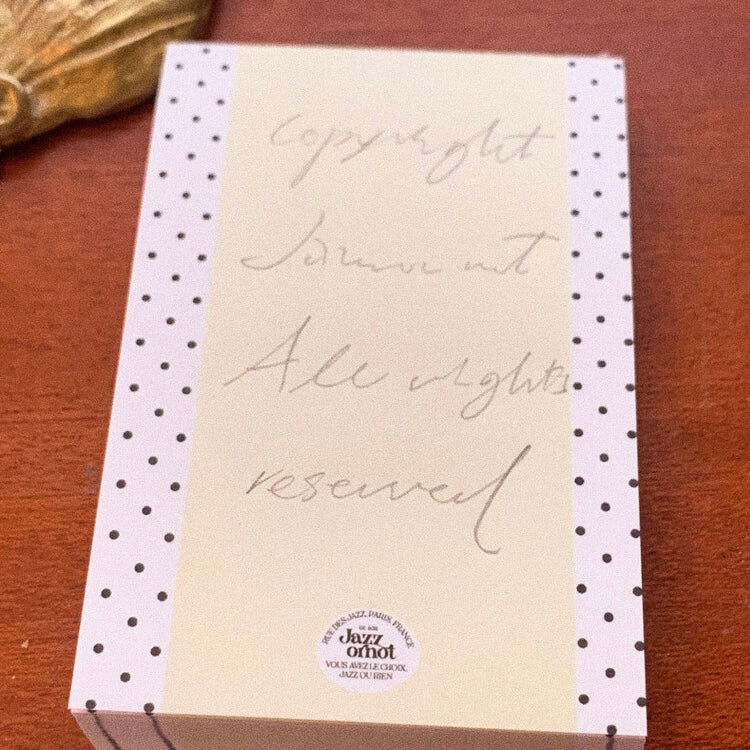 Copyright
Jazzornot
All rights
reserved
RUE DES JAZZ, PARIS, FRANCE
Jazz
ornot
VOUS AVEZ LE CHOIX,
JAZZ OU RIEN